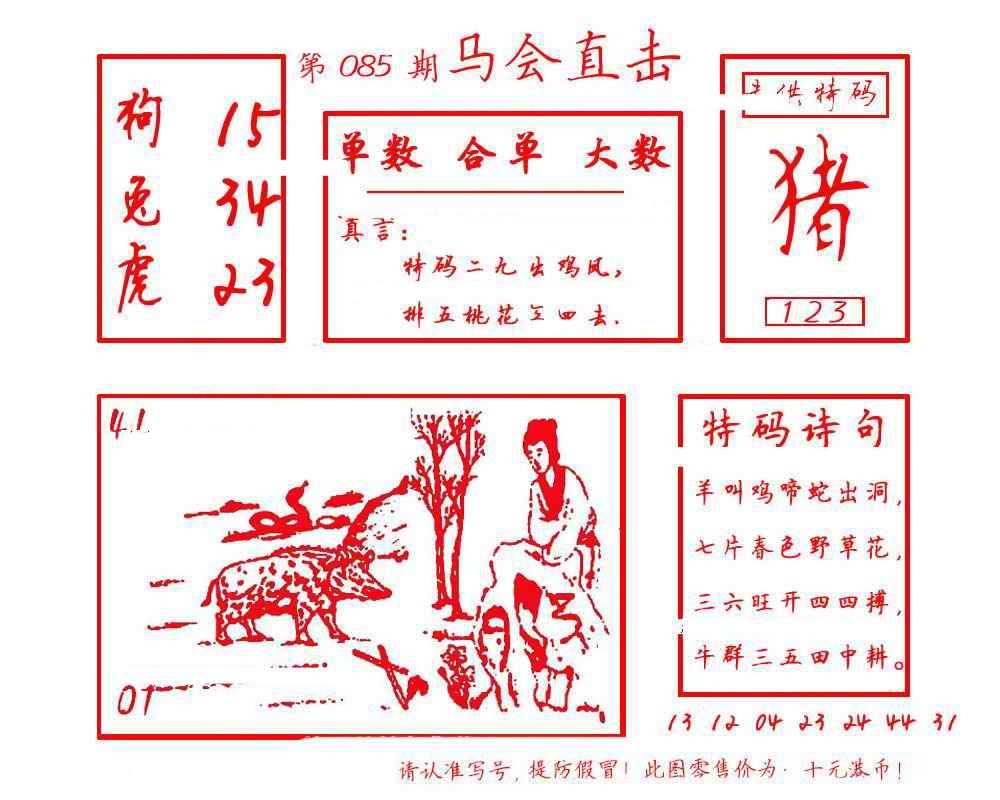 第 085 期 马会直击
狗 15
兔 34
虎 23
单数 合单 大数
真言：
特码二九出鸡凤，
排五桃花三四去.
供特码
猪
123
41
01
特码诗句
羊叫鸡啼蛇出洞，
七片春色野草花，
三六旺开四四搏，
牛群三五田中耕。
13 12 04 23 24 44 31
请认准写号，提防假冒！此图零售价为·十元港币！